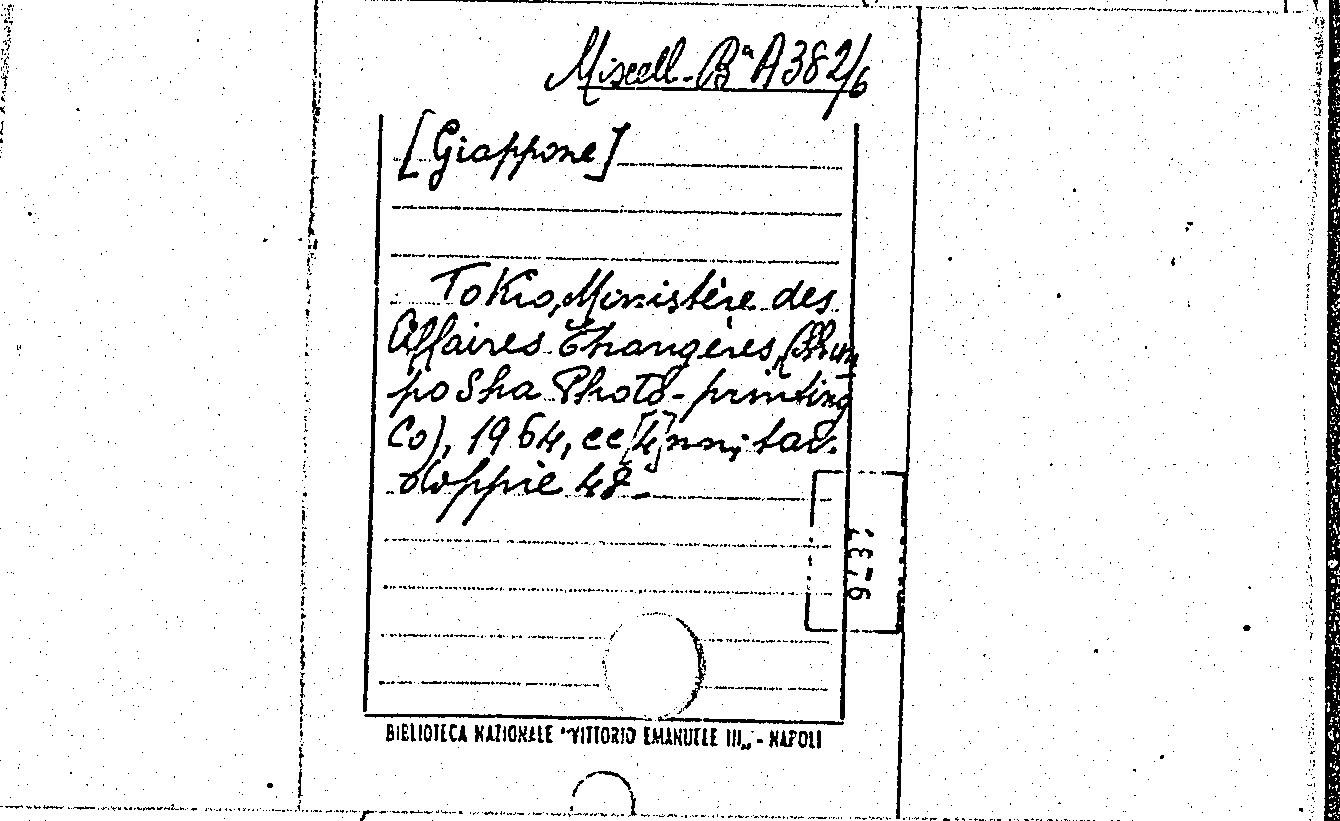 Miscell. Bª A 382/6
[Giappone]
Tokio, Ministère des
Affaires Étrangères, (Shim
po Sha Photo-printing
Co), 1964, cc [4] nn; tav.
doppie 48.
BIBLIOTECA NAZIONALE "VITTORIO EMANUELE III„ - NAPOLI